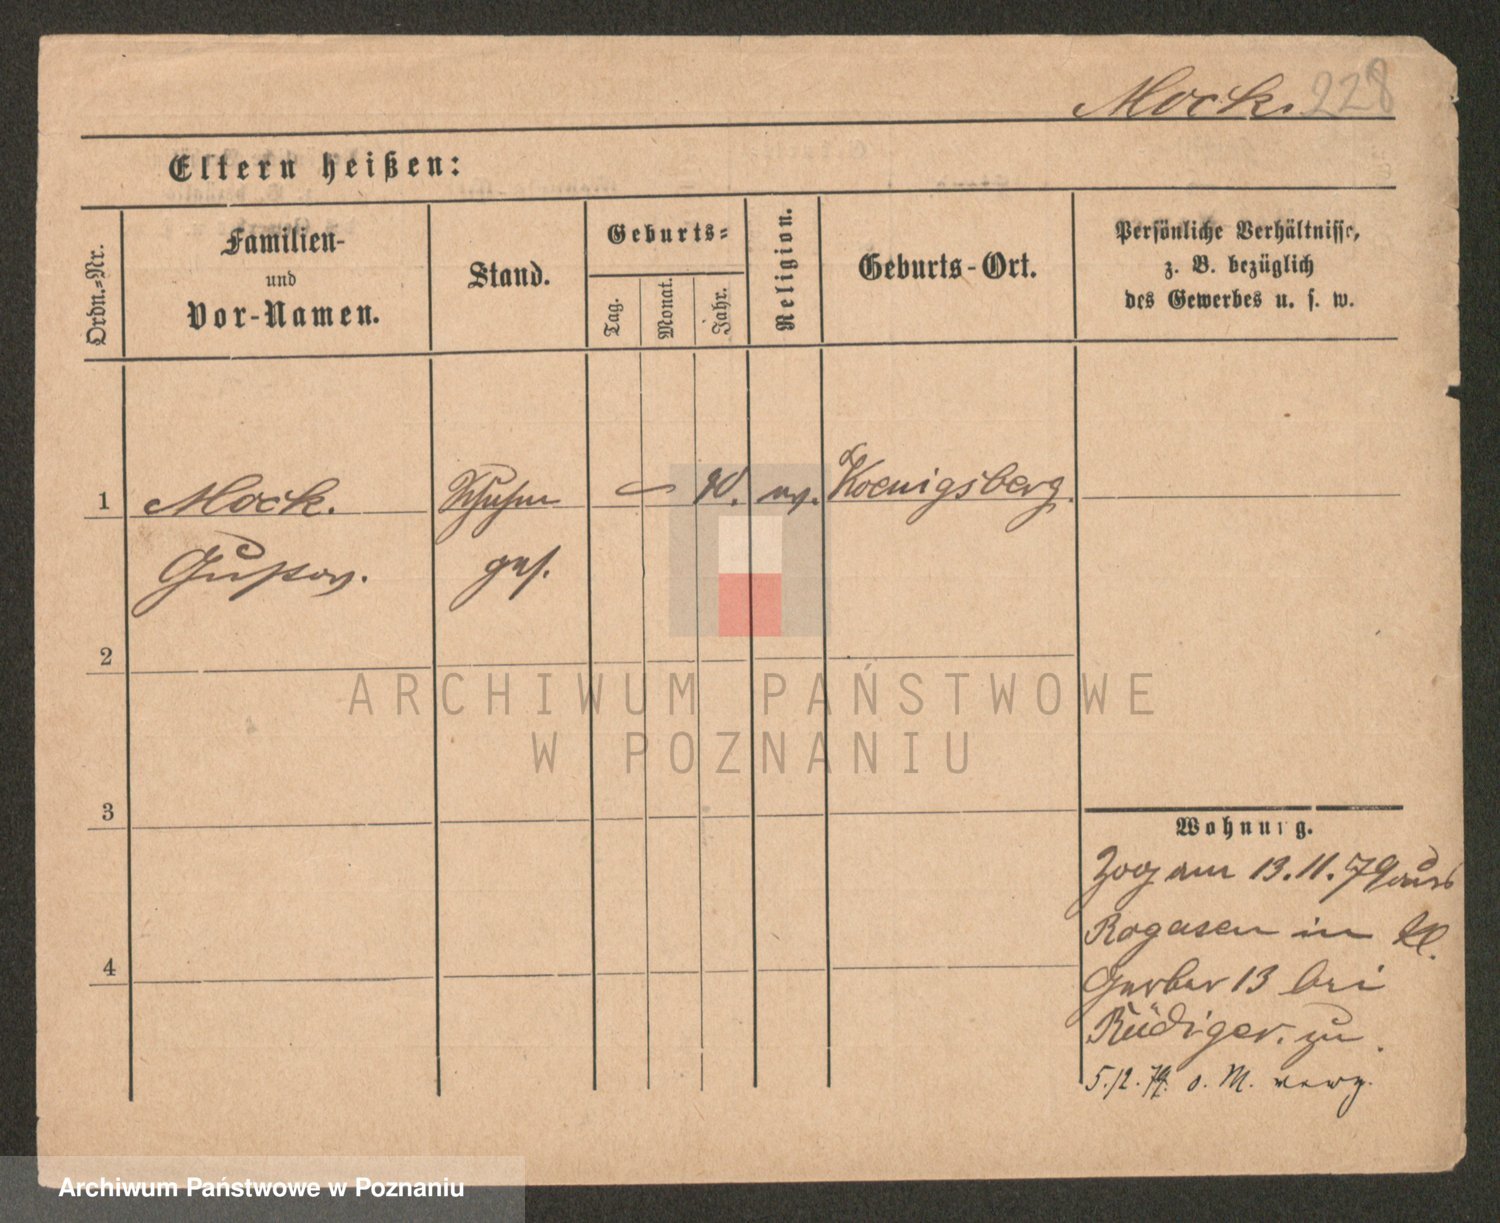 Mock. 228
Eltern heißen:
Ordn.-Nr.
Familien-
und
Vor-Namen.
Stand.
Geburts-
Tag.
Monat.
Jahr.
Religion.
Geburts-Ort.
Persönliche Verhältnisse,
z. B. bezüglich
des Gewerbes u. s. w.
1 Mock. ev. Koenigsberg.
Gustav. ges.
2
3
4
Wohnung.
Zog am 13.11.79 aus
Rogasen in Kl.
Gerber 13 bei
Rüdiger. zu
5.12.79. o. M. verz.
ARCHIWUM PAŃSTWOWE
W POZNANIU
Archiwum Państwowe w Poznaniu